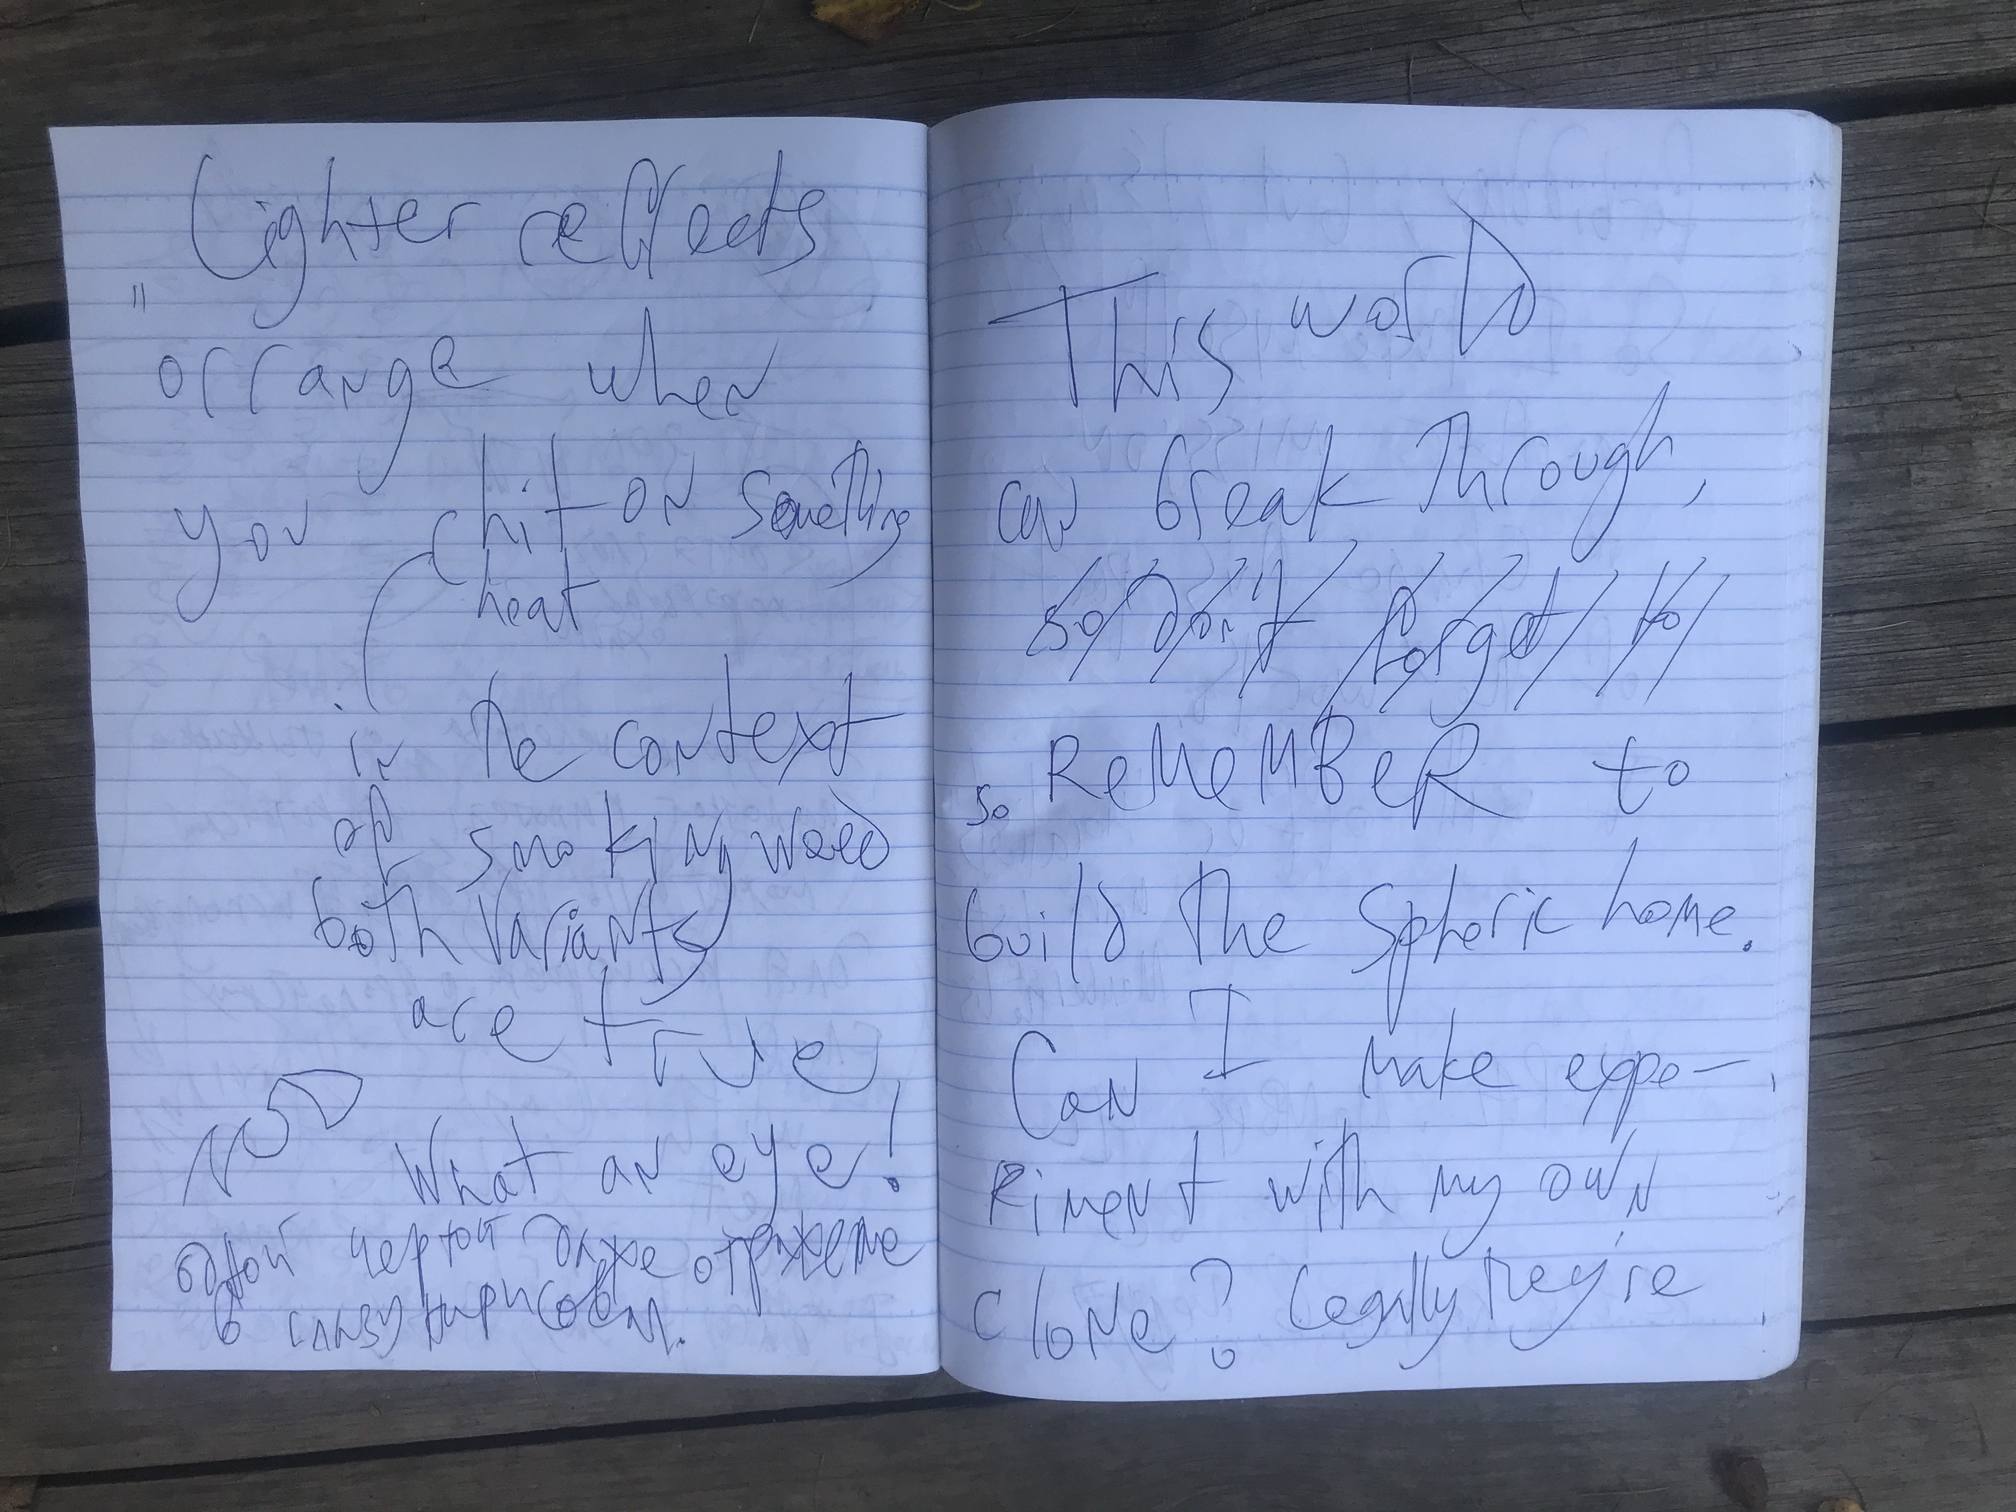 Lighter reflects
"
orrange when
you hit on something
heat
in the context
of smoking weed
both variants
are true,
What an eye!
одной чертой даже отражение
в глазу нарисовал.
This world
can break through,
so don't forget to
so ReMeMBeR to
build the Spheric home.
Can I make expe-
Riment with my own
clone? Legally they're